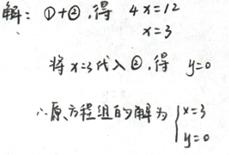 解：①+②，得 4x=12
x=3
将x=3代入②，得 y=0
∴原方程组的解为{x=3
y=0